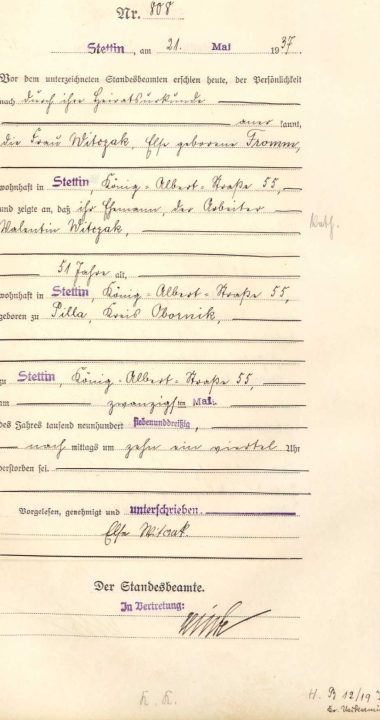 Nr. 808
Stettin, am 21. Mai 1937
Vor dem unterzeichneten Standesbeamten erschien heute, der Persönlichkeit
nach durch ihre Heiratsurkunde
aner kannt,
die Frau Witczak, Else geborene Fromm,
wohnhaft in Stettin, König-Albert-Straße 55,
und zeigte an, daß ihr Ehemann, der Arbeiter
Valentin Witczak,
51 Jahre alt,
wohnhaft in Stettin, König-Albert-Straße 55,
geboren zu Pilla, Kreis Obornik,
zu Stettin, König-Albert-Straße 55,
am zwanzigsten Mai
des Jahres tausend neunhundert siebenunddreißig,
nach mittags um zehn ein viertel Uhr
verstorben sei.
Vorgelesen, genehmigt und unterschrieben.
Else Witczak
Der Standesbeamte.
In Vertretung:
kath.
H. B 12/19